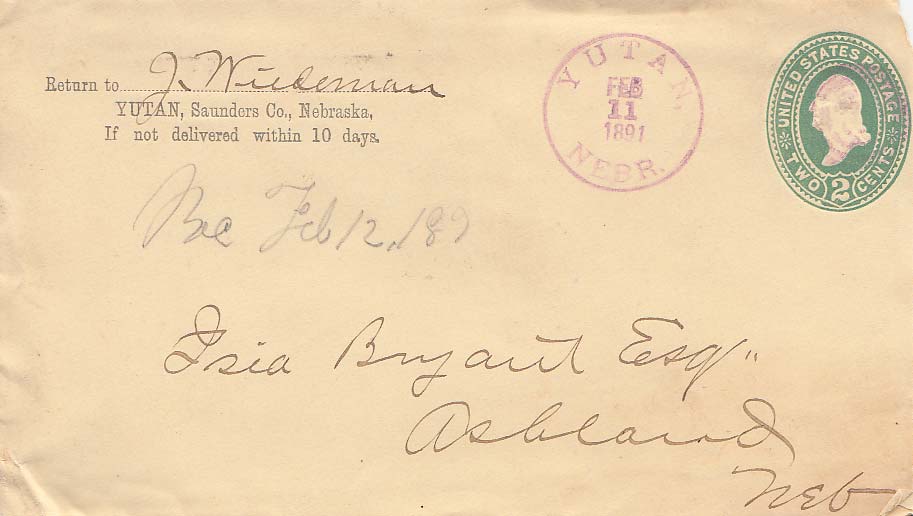 Return to J. Wiedeman
YUTAN, Saunders Co., Nebraska,
If not delivered within 10 days.
YUTAN,
FEB
11
1891
NEBR.
UNITED STATES POSTAGE
TWO 2 CENTS
Rec Feb 12, 189
Isia Bryant Esq"
Ashland
Neb